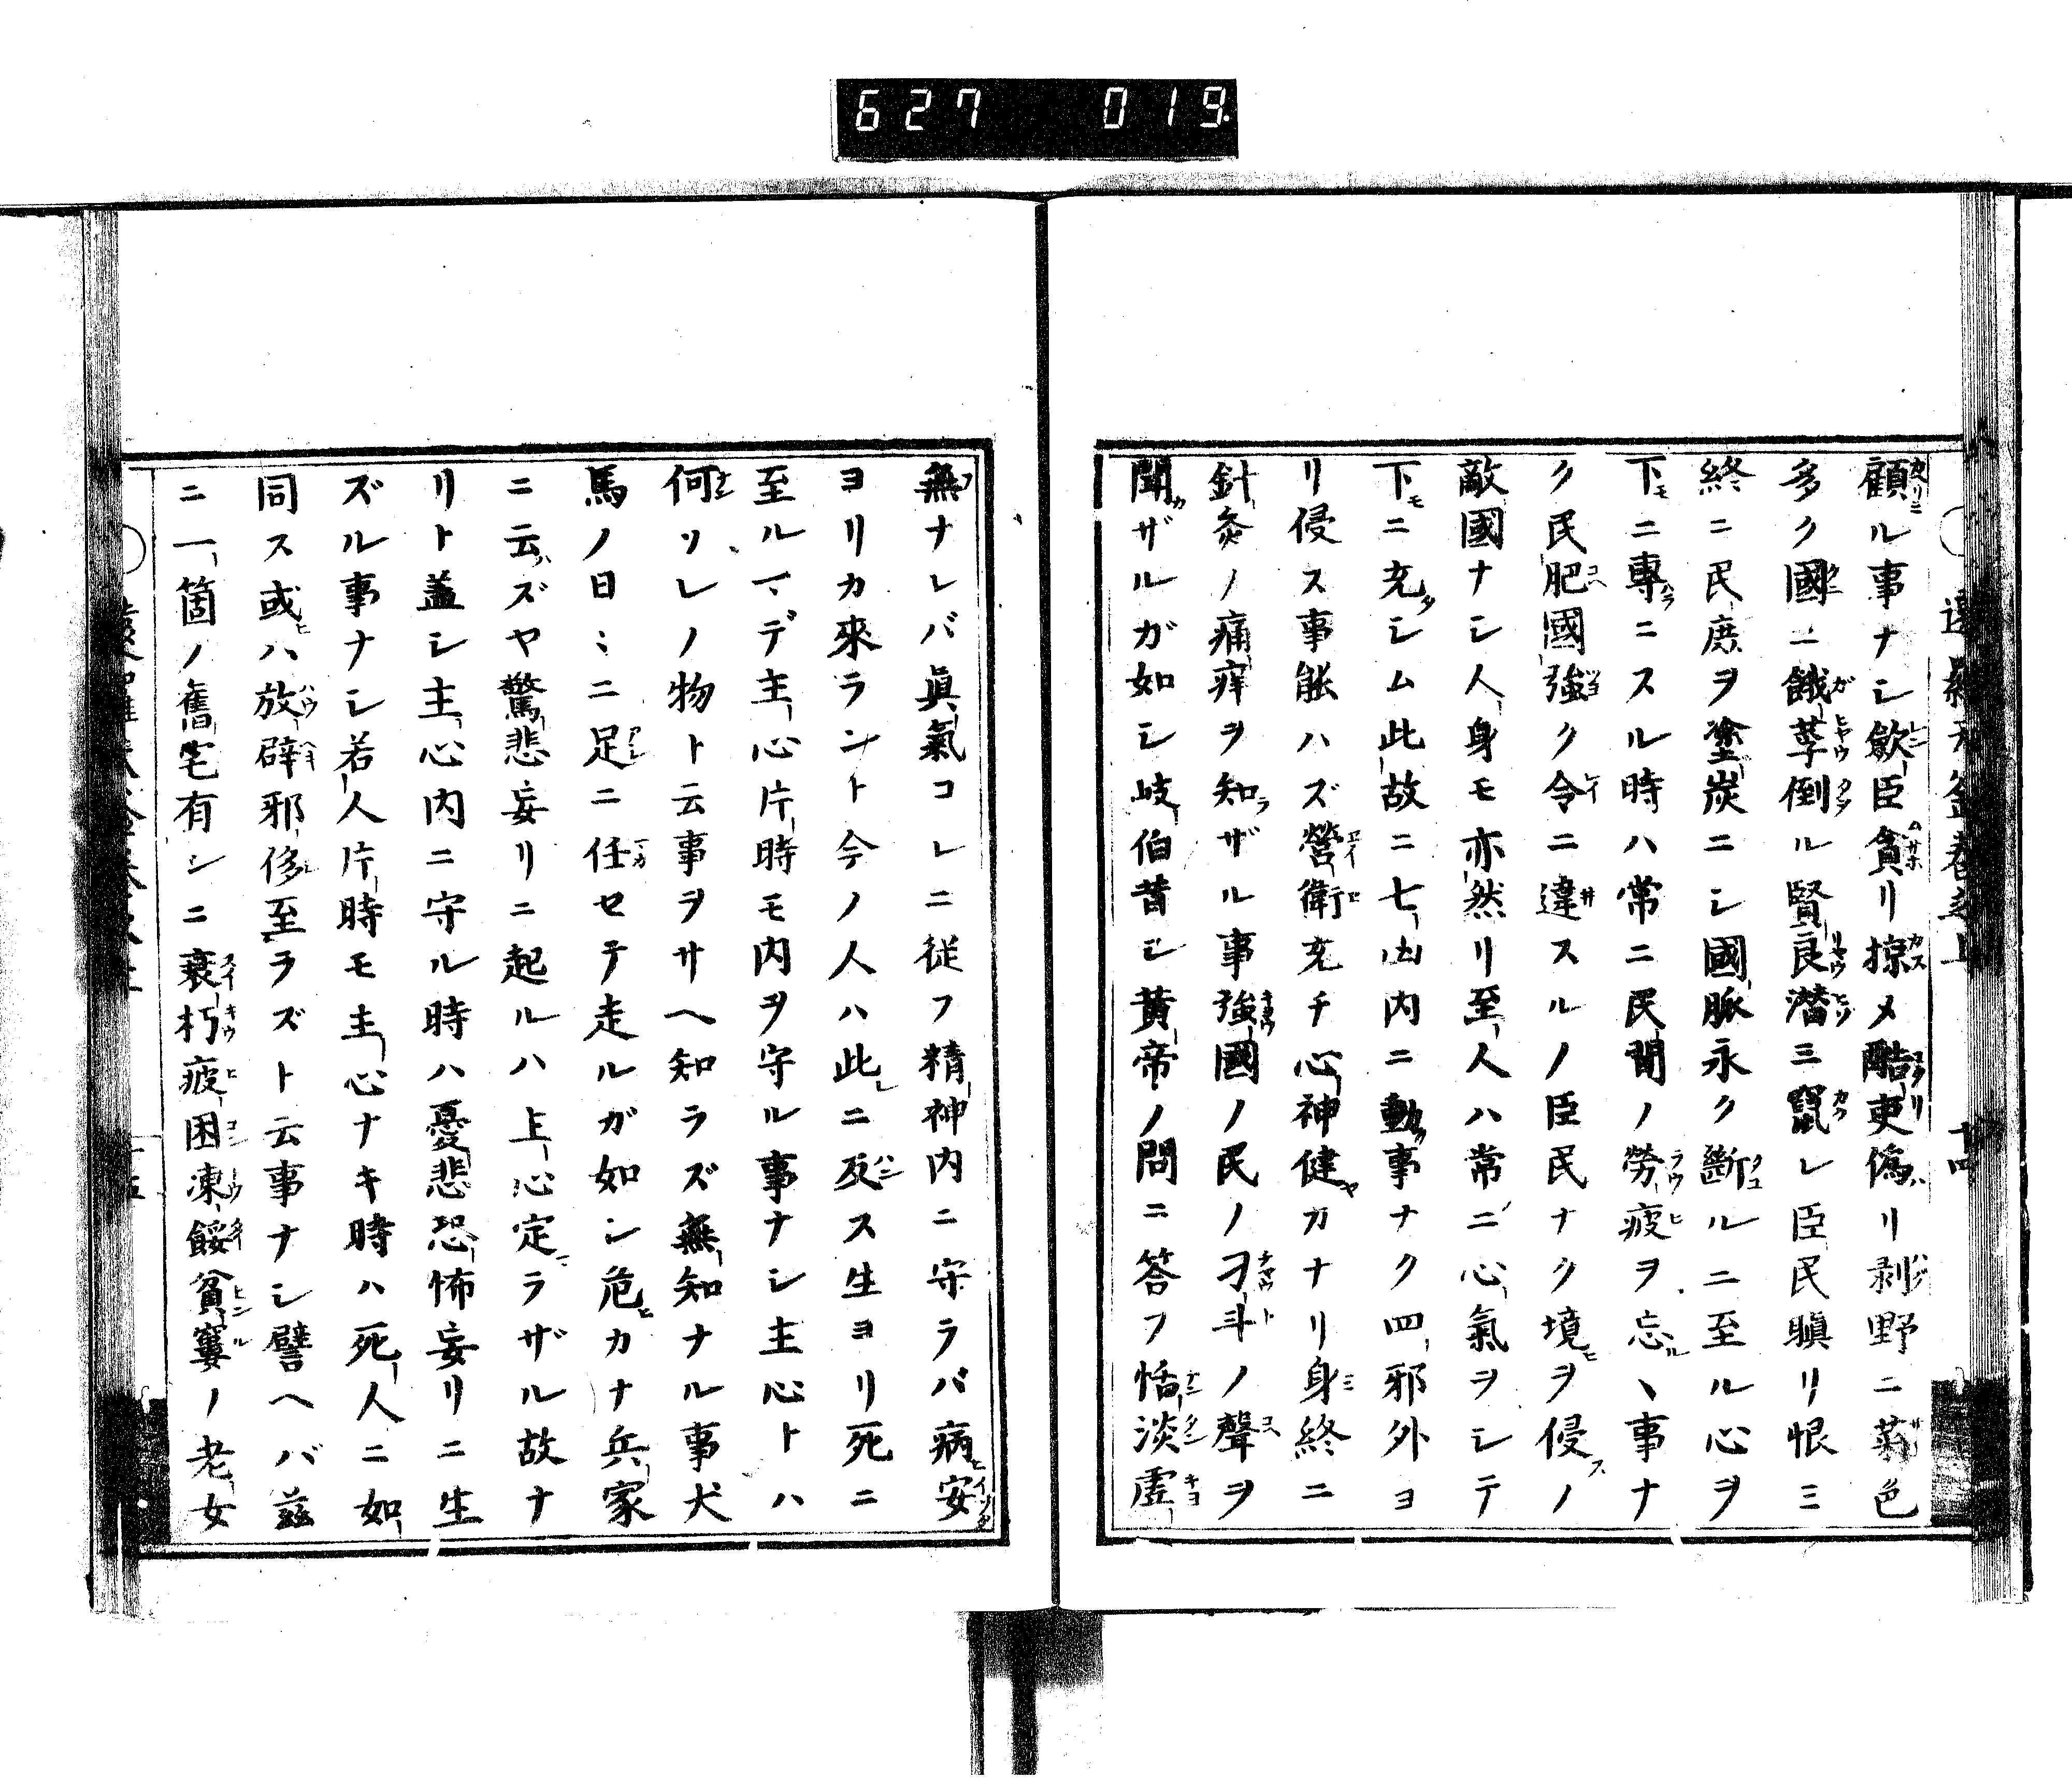 627 019
顧ル事ナシ歛臣貪リ掠メ酷吏偽リ剥野ニ菜色
多ク國ニ餓莩倒ル賢良潜ミ竄レ臣民瞋リ恨ミ
終ニ民庶ヲ塗炭ニシ國脈永ク斷ルニ至ル心ヲ
下ニ專ニスル時ハ常ニ民間ノ勞疲ヲ忘ル丶事ナ
ク民肥國強ク令ニ違スルノ臣民ナク境ヲ侵スノ
敵國ナシ人身モ亦然リ至人ハ常ニ心氣ヲシテ
下ニ充シム此故ニ七凶内ニ動事ナク四邪外ヨ
リ侵ス事能ハズ營衛充チ心神健カナリ身終ニ
針灸ノ痛痒ヲ知ラザル事強國ノ民ノ刁斗ノ聲ヲ
聞ザルガ如シ岐伯昔シ黄帝ノ問ニ答フ恬淡虚
無ナレバ眞氣コレニ従フ精神内ニ守ラバ病安
ヨリカ來ラント今ノ人ハ此ニ反ス生ヨリ死ニ
至ルマデ主心片時モ内ヲ守ル事ナシ主心トハ
何ソレノ物ト云事ヲサヘ知ラズ無知ナル事犬
馬ノ日〻ニ足ニ任セテ走ルガ如シ危カナ兵家
ニ云ズヤ驚悲妄リニ起ルハ主心定ラザル故ナ
リト蓋シ主心内ニ守ル時ハ憂悲恐怖妄リニ生
ズル事ナシ若人片時モ主心ナキ時ハ死人ニ如
同ス或ハ放辟邪侈至ラズト云事ナシ譬ヘバ茲
ニ一箇ノ舊宅有シニ衰朽疲困凍餒貧窶ノ老女